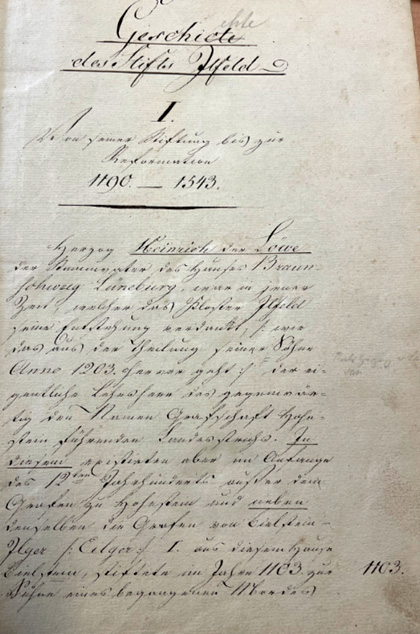 Geschichte
des Stifts Ilfeld
I.
Von seiner Stiftung bis zur
Reformation
1190. — 1543.
Herzog Heinrich der Löwe
der Stammvater des Hauses Braun-
schweig Lüneburg, war in jener
Zeit, welcher das Kloster Ilfeld
seine Entstehung verdankt, /: wie
das aus der Theilung seiner Söhne
Anno 1203. hervor geht :/ der ei-
gentliche Lehnsherr des gegenwär-
tig den Namen Grafschaft Hohn-
stein führenden Landesstrichs. In
diesem existirten aber im Anfange
des 12ten Jahrhunderts außer dem
Grafen zu Hohnstein und neben
denselben die Grafen von Bielstein-
Ilger /: Eilger :/ I. aus diesem Hause
Bielstein, stiftete im Jahre 1103. zur
1103.
Sühne eines begangenen Mordes